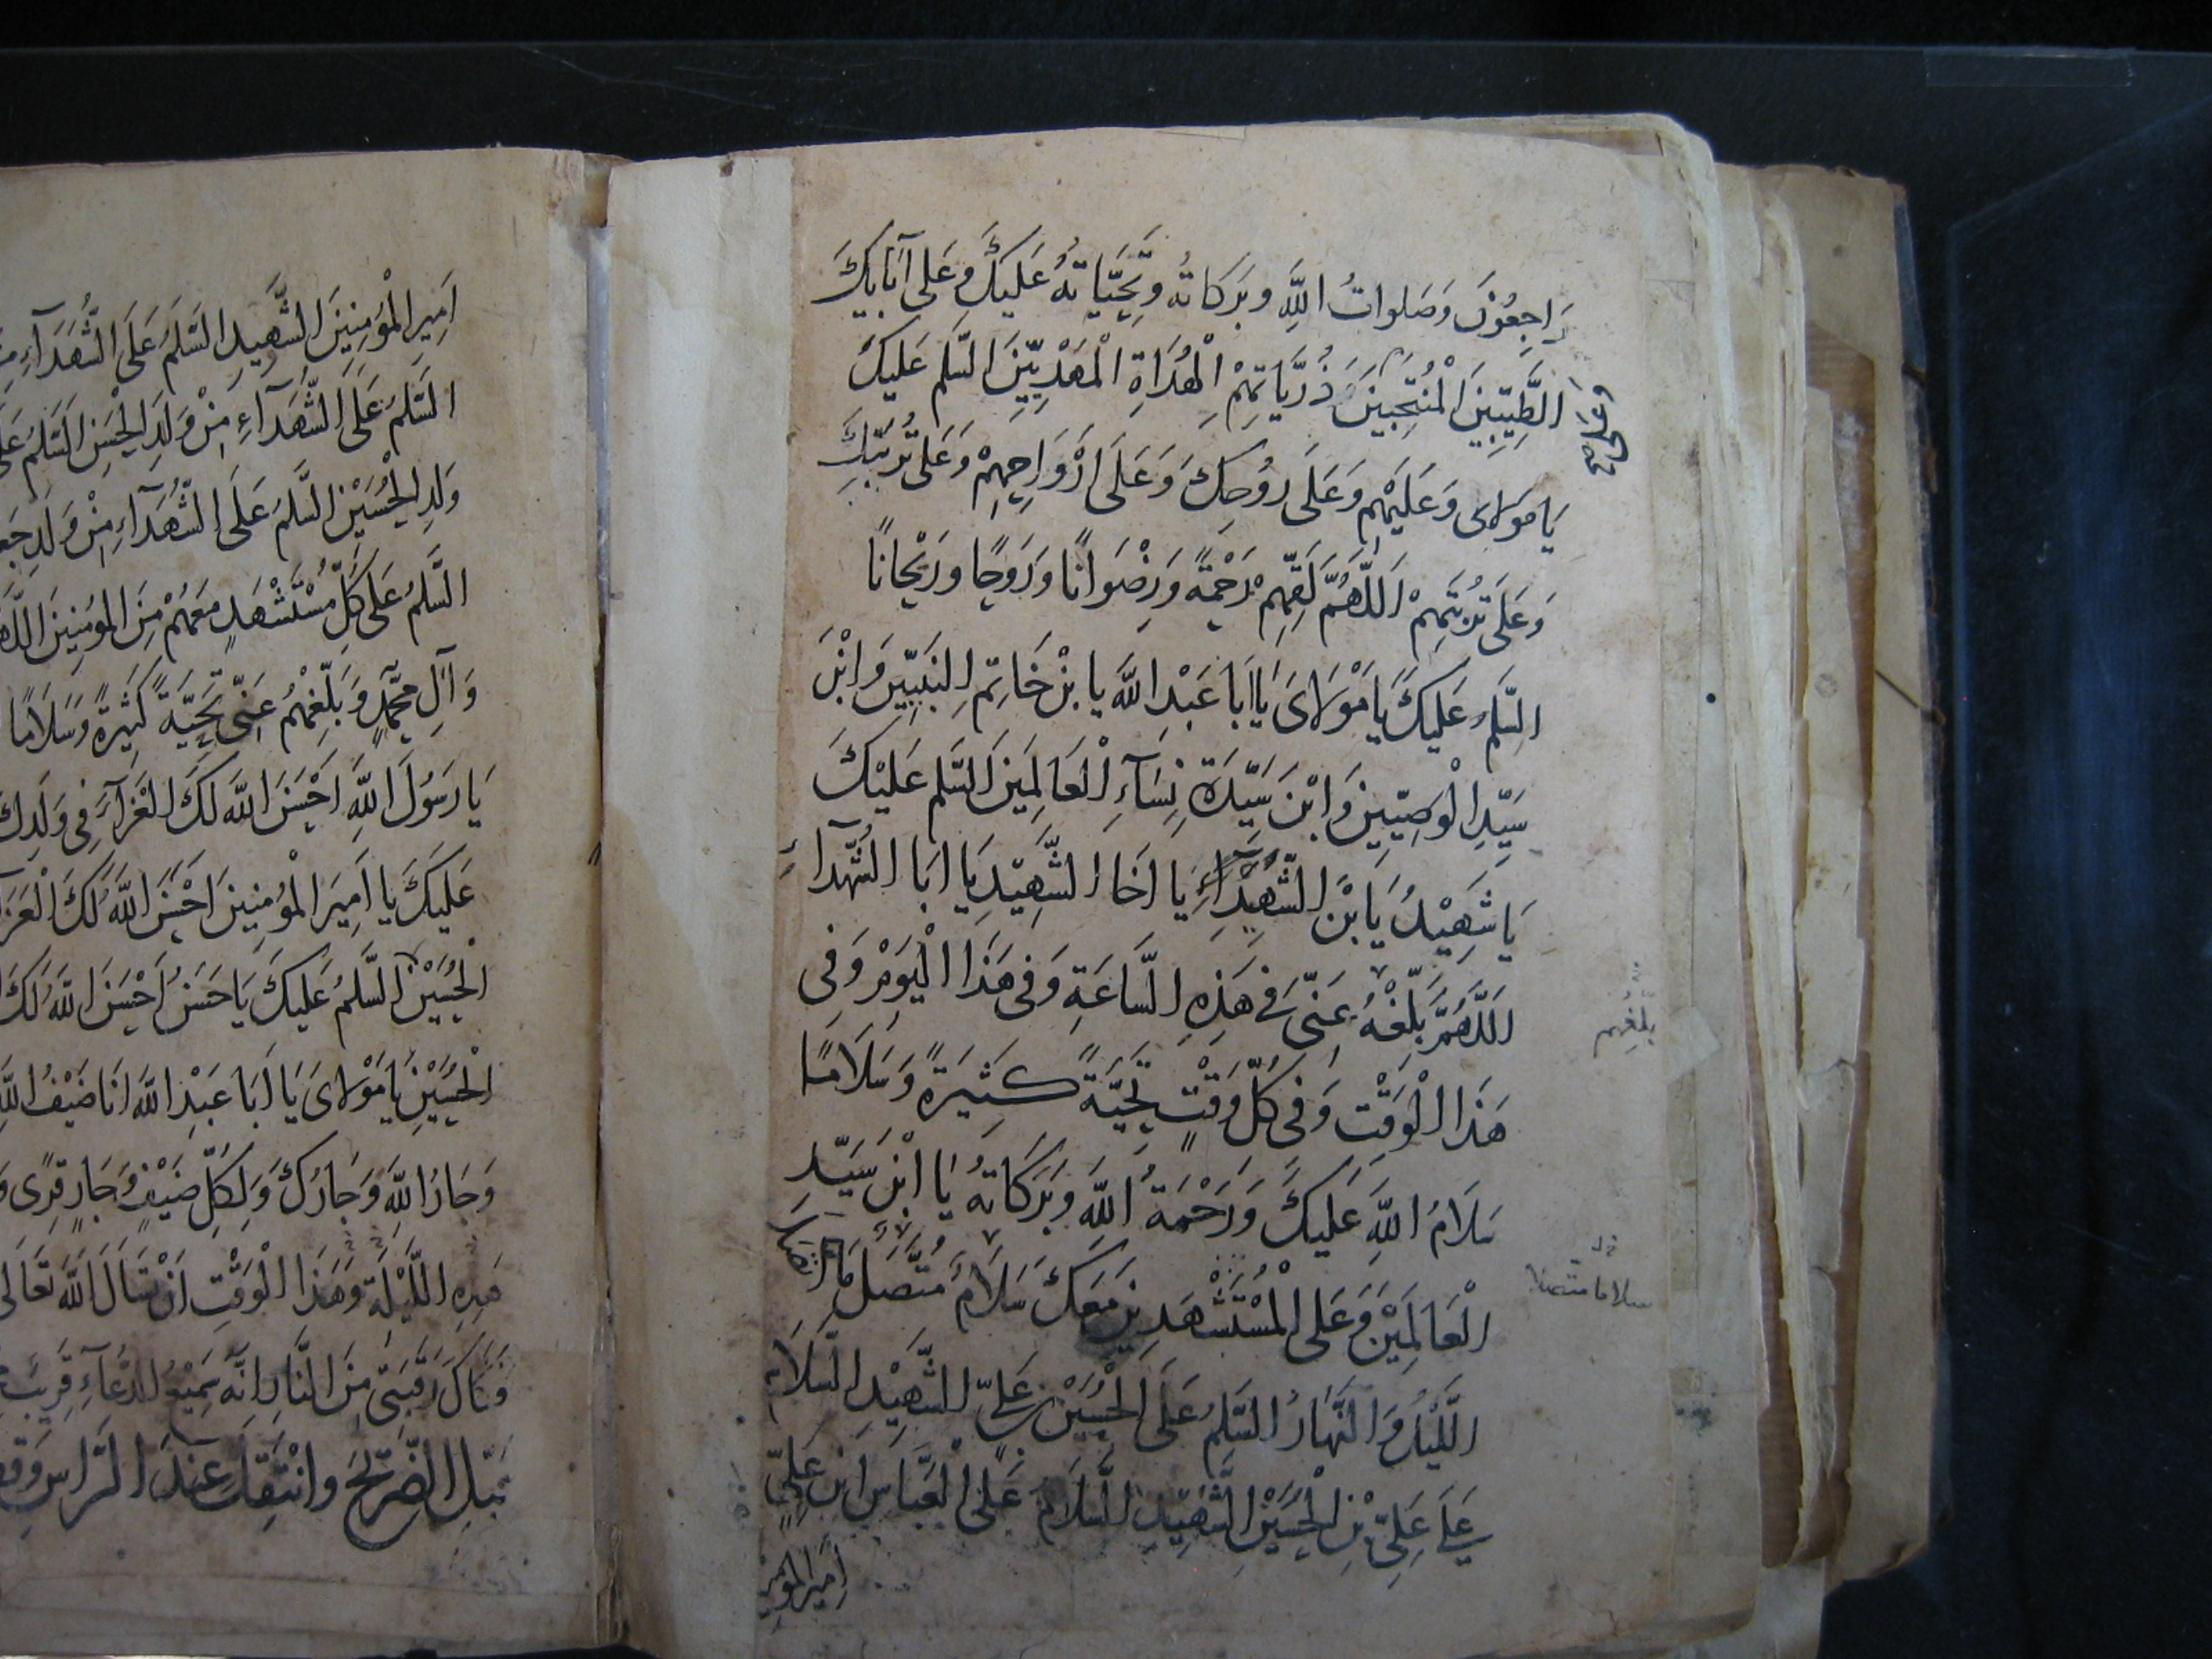 رَاجِعُونَ وَصَلَواتُ اللَّهِ وبَرَكَاتُه وَتَحِيَّاتُهُ عَلَيكَ وعَلى آبَايِكَ
الطَّيِّبِينَ الْمُنْتَجَبِينَ وَ ذُرِّيَّاتِهِمْ الْهُدَاةِ الْمَهْدِيِّينَ السَّلَم عَلَيكَ
وعلى
يَا مَولاىَ وَعَلَيهِم وَعَلَى رُوُحِكَ وَعَلَى اَرْوَاحِهِمْ وَعَلى تُربَتِكَ
وَعَلَى تُربَتِهِمْ اَللَّهُمَّ لَقِّهِمْ رَحْمَةً وَرِضْوَانًا ورَوحًا ورَيْحَانًا
السَّلَمُ عَلَيكَ يَا مَوْلَاىَ يَا اَبَا عَبْدِ اللَّه يا بنْ خَاتِمِ النَّبِيّينَ وَابْنَ
سَيّدِ الْوَصِيّينَ وَابْنَ سَيّدَةِ نِسَآءِ الْعَالَمِينَ السَّلم عَلَيْكَ
يَا شَهِيْدُ يَا بْنَ الشَّهِيْدِ يَا اَخَا الشَّهِيْدِ يَا اَبَا الشُّهَدآءِ
اَللَّهُمَّ بَلِّغْهُ عَنّى فِي هَذِهِ السَّاعَةِ وَفى هَذَا الْيَوْمِ وَفِى
بلّغهم
هَذَا الْوَقْتِ وَفى كُلّ وَقْتٍ تَحِيَّةً كَثِيرَةً وَسَلَامًا
سَلَامُ اللَّهِ عَلَيكَ وَرَحْمَةُ اللَّهِ وبَرَكَاتُهُ يَا ابْنَ سَيّدِ
الْعَالَمِيْنَ وَعَلى الْمُسْتَشْهَدِينَ مَعَكَ سَلَامً مُتَّصَلً مَا اتصل
سلاما متصلا
اللَّيْلُ وَالنَّهَارُ السَّلَمُ عَلَى الْحُسَيْنِ بن عَلىّ الشَّهِيْدِ السَّلَامُ
عَلَى عَلِىّ بْنِ الْحُسَيْنِ الشَّهِيْدِ السَّلَامُ عَلى الْعَبَّاسِ ابْنِ عَلِىّ
اميرالمومنين
اَمِيرِ الْمُؤمِنِينَ الشَّهِيدِ السَّلَمُ عَلَى الشُّهَدَآءِ
السَّلَمُ عَلَى الشُّهَدَآءِ مِنْ وَلَدِ الْحَسَنِ السَّلَمُ
وَلَدِ الْحُسَيْنِ السَّلَمُ عَلَى الشُّهَدَآءِ مِنْ وَلَدِ
السَّلَمُ عَلى كُلّ مُسْتَشْهَدٍ مَعَهُمْ مِنَ المؤمِنِينَ
وَآلِ مُحَمَّدٍ وَبَلِّغْهُم عَنِّى تَحِيَّةً كَثِيرَةً وَسَلَامًا
يَا رَسُولَ اللَّهِ اَحْسَنَ اللَّه لَكَ العَزآءَ فِى وَلَدِكَ
عَلَيكَ يا اَمِيرَ الْمُؤمِنِينَ اَحْسَنَ اللَّهُ لَكَ
الْحُسَيْنِ السَّلَمُ عَلَيكَ يَا حَسَنُ اَحْسَنَ اللَّهُ لَكَ
الْحُسَيْنِ يَا مَوْلاىَ يَا اَبَا عَبْدِ اللَّهِ اَنَا ضَيْفُ اللَّهِ
وَجَارُ اللَّهِ وَجَارُكَ وَلِكُلّ ضَيْفٍ وَجَارٍ قِرًى
هَذِهِ اللَّيْلَةِ وَهَذَا الْوَقْتِ اَنْ تَسْاَلَ اللَّهَ تَعَالى
فَكَاكَ رَقَبَتِى مِنَ النَّارِ اِنَّه سَمِيْعُ الدُّعَآءِ قَرِيبٌ
قَبّلِ الضَّرِيْحَ وانْتَقِلْ عِنْدَ الرَّاسِ وَقِفْ